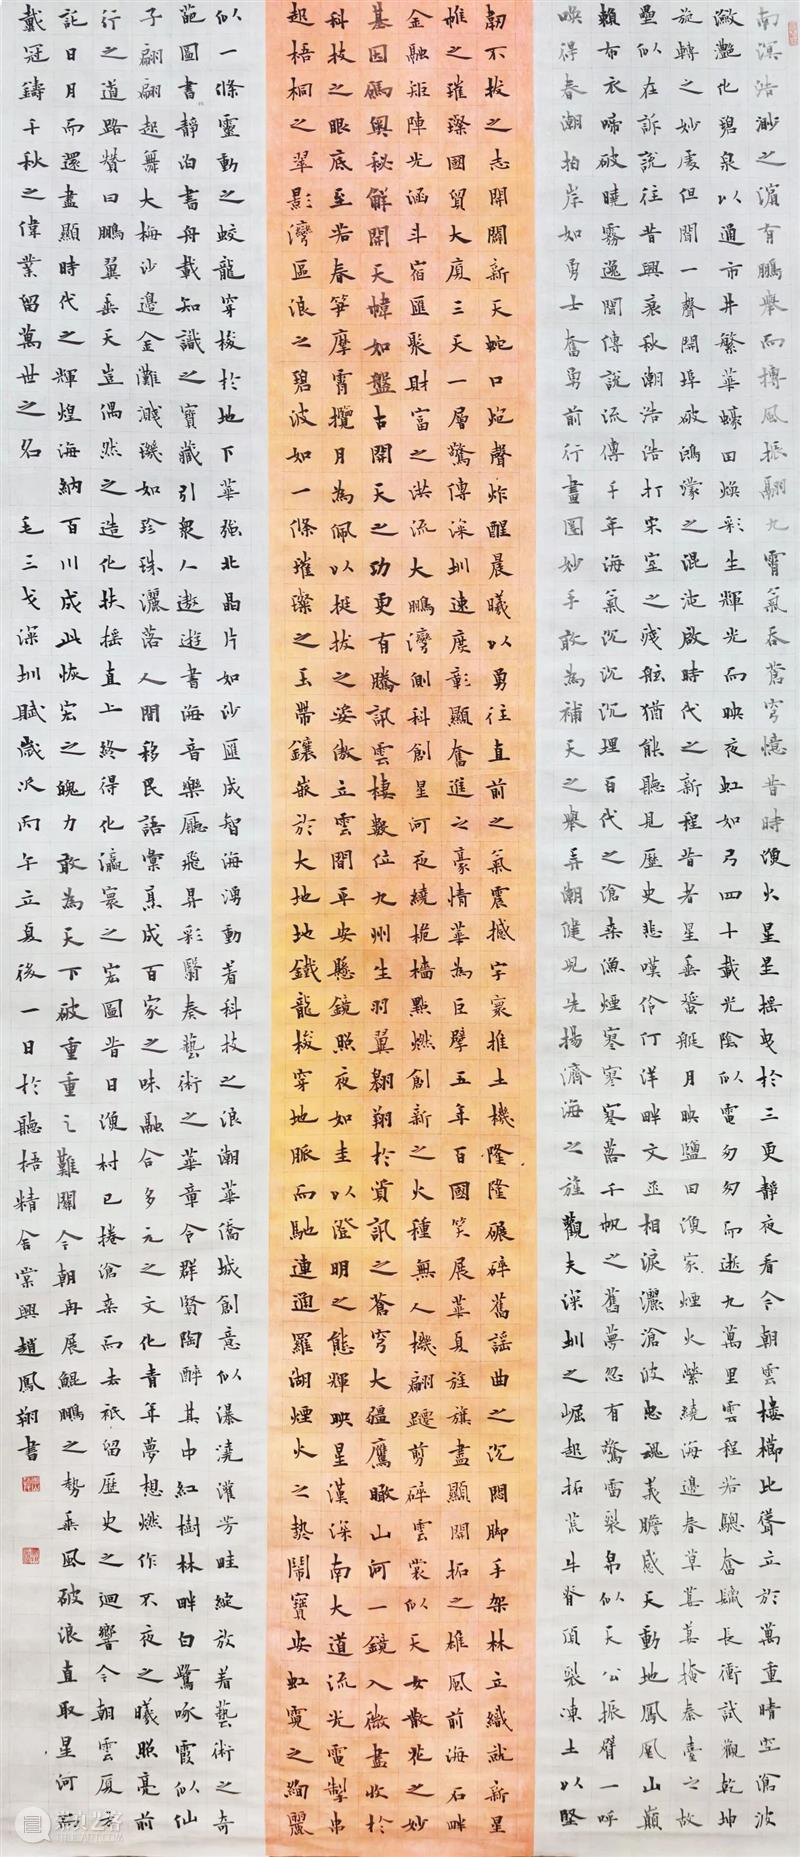 南溟浩渺之濱有鵬舉而摶風振翮九霄氣吞蒼穹憶昔時漁火星星搖曳於三更靜夜看今朝雲樓櫛比聳立於萬重晴空滄波
瀲灩化碧泉以通市井繁華蠔田煥彩生輝光而映夜虹如弓四十載光陰似電匆匆而逝九萬里雲程若驄奮驥長衝試觀乾坤
旋轉之妙處但聞一聲開埠破鴻濛之混沌啟時代之新程昔者星垂蜑艇月映鹽田漁家煙火縈繞海邊春草萋萋掩秦臺之故
壘似在訴說往昔興衰秋潮浩浩打宋室之殘舷猶能聽見歷史悲嘆伶仃洋畔文丞相淚灑滄波忠魂義膽感天動地鳳凰山巔
賴布衣啼破曉霧逸聞傳說流傳千年海氣沉沉沉埋百代之滄桑漁煙寒寒寒落千帆之舊夢忽有驚雷裂帛似天公振臂一呼
喚得春潮拍岸如勇士奮勇前行畫圖妙手敢為補天之舉弄潮健兒先揚濟海之旌觀夫深圳之崛起拓荒牛脊頂裂凍土以堅
韌不拔之志開闢新天蛇口炮聲炸醒晨曦以勇往直前之氣震撼宇寰推土機隆隆碾碎舊謠曲之沉悶腳手架林立織就新星
帷之璀璨國貿大廈三天一層驚傳深圳速度彰顯奮進之豪情華為巨擘五年百國笑展華夏旌旗盡顯開拓之雄風前海石畔
金融矩陣光涵斗宿匯聚財富之洪流大鵬灣側科創星河夜繞桅檣點燃創新之火種無人機翩躚剪碎雲裳似天女散花之妙
基因碼奧秘解開天幛如盤古開天之功更有騰訊雲棲數位九州生羽翼翱翔於資訊之蒼穹大疆鷹瞰山河一鏡入微盡收於
科技之眼底至若春筍摩霄攬月為佩以挺拔之姿傲立雲間平安懸鏡照夜如圭以澄明之態輝映星漢深南大道流光電掣串
起梧桐之翠影灣區浪之碧波如一條璀璨之玉帶鑲嵌於大地地鐵龍梭穿地脈而馳連通羅湖煙火之熱鬧寶安虹霓之絢麗
似一條靈動之蛟龍穿梭於地下華強北晶片如沙匯成智海湧動著科技之浪潮華僑城創意似瀑澆灌芳畦綻放著藝術之奇
葩圖書靜泊書舟載知識之寶藏引眾人遨遊書海音樂廳飛昇彩翳奏藝術之華章令群賢陶醉其中紅樹林畔白鷺啄霞似仙
子翩翩起舞大梅沙邊金灘濺璣如珍珠灑落人間移民語彙烹成百家之味融合多元之文化青年夢想燃作不夜之曦照亮前
行之道路贊曰鵬翼垂天豈偶然之造化扶搖直上終得化瀛寰之宏圖昔日漁村已捲滄桑而去衹留歷史之迴響今朝雲廈
託日月而還盡顯時代之輝煌海納百川成此恢宏之魄力敢為天下破重重之難關今朝再展鯤鵬之勢乘風破浪直取星河
戴冠鑄千秋之偉業留萬世之名 毛三戈深圳賦歲次丙午立夏後一日於聽梧精舍棠興趙鳳翔書